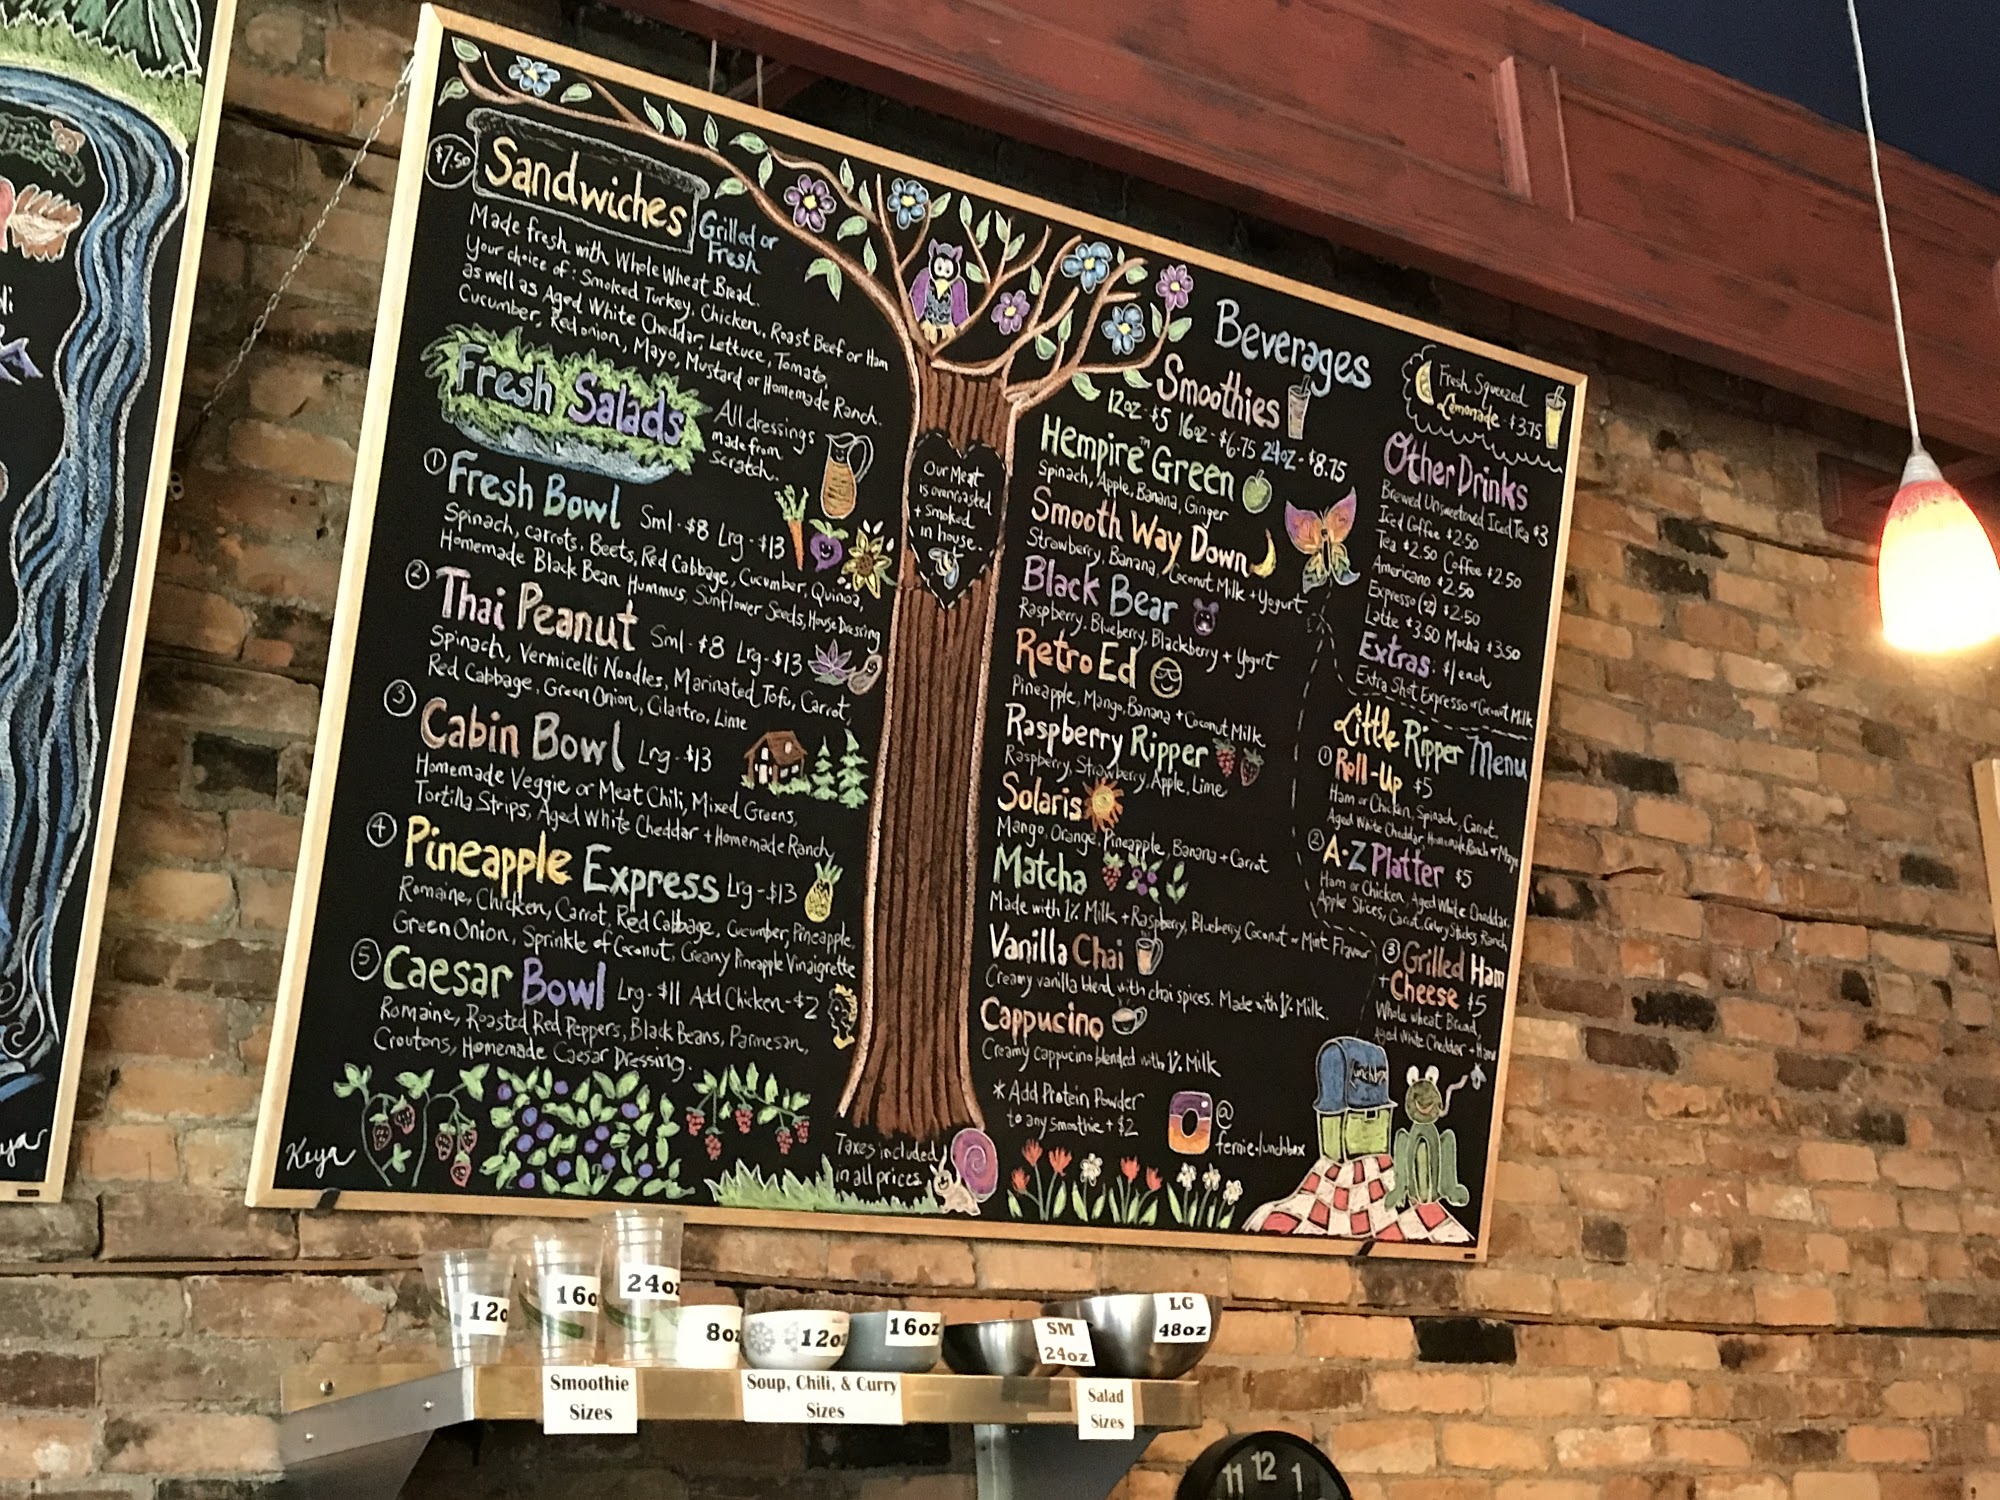 $7.50
Sandwiches
Grilled or
Fresh
Made fresh with Whole Wheat Bread.
Your choice of: Smoked Turkey, Chicken, Roast Beef or Ham
as well as Aged White Cheddar, Lettuce, Tomato,
Cucumber, Red onion, Mayo, Mustard or Homemade Ranch.
Fresh Salads
All dressings
made from
scratch.
① Fresh Bowl Sml - $8 Lrg - $13
Spinach, carrots, Beets, Red Cabbage, Cucumber, Quinoa,
Homemade Black Bean Hummus, Sunflower Seeds, House Dressing
② Thai Peanut Sml - $8 Lrg - $13
Spinach, Vermicelli Noodles, Marinated Tofu, Carrot,
Red Cabbage, Green Onion, Cilantro, Lime
③ Cabin Bowl Lrg - $13
Homemade Veggie or Meat Chili, Mixed Greens,
Tortilla Strips, Aged White Cheddar + Homemade Ranch
④ Pineapple Express Lrg - $13
Romaine, Chicken, Carrot, Red Cabbage, Cucumber, Pineapple,
Green Onion, Sprinkle of Coconut, Creamy Pineapple Vinaigrette
⑤ Caesar Bowl Lrg - $11 Add Chicken - $2
Romaine, Roasted Red Peppers, Black Beans, Parmesan,
Croutons, Homemade Caesar Dressing.
Keya
Our Meat
is oven roasted
+ smoked
in house.
Taxes included
in all prices
Beverages
Smoothies
12oz - $5 16oz - $6.75 24oz - $8.75
Hempire™ Green
Spinach, Apple, Banana, Ginger
Smooth Way Down
Strawberry, Banana, Coconut Milk + Yogurt
Black Bear
Raspberry, Blueberry, Blackberry + Yogurt
Retro Ed
Pineapple, Mango, Banana + Coconut Milk
Raspberry Ripper
Raspberry, Strawberry, Apple, Lime
Solaris
Mango, Orange, Pineapple, Banana + Carrot
Matcha
Made with 1% Milk + Raspberry, Blueberry, Coconut or Mint Flavour
Vanilla Chai
Creamy vanilla blend with chai spices. Made with 1% Milk.
Cappucino
Creamy cappucino blended with 1% Milk
* Add Protein Powder
to any smoothie + $2
@
fernie.lunchbox
Fresh Squeezed
Lemonade - $3.75
Other Drinks
Brewed Unsweetened Iced Tea $3
Iced Coffee $2.50
Tea $2.50 Coffee $2.50
Americano $2.50
Espresso (2oz) $2.50
Latte $3.50 Mocha $3.50
Extras: $1 each
Extra Shot Espresso or Coconut Milk
Little Ripper Menu
① Roll-Up $5
Ham or Chicken, Spinach, Carrot,
Aged White Cheddar, Homemade Ranch or Mayo
② A-Z Platter $5
Ham or Chicken, Aged White Cheddar,
Apple Slices, Carrot, Celery Sticks, Ranch
③ Grilled Ham
+ Cheese $5
Whole wheat Bread,
Aged White Cheddar + Ham
Lunchbox
12o
16o
24oz
8oz
12oz
16oz
SM
24oz
LG
48oz
Smoothie
Sizes
Soup, Chili, & Curry
Sizes
Salad
Sizes
11 12 1